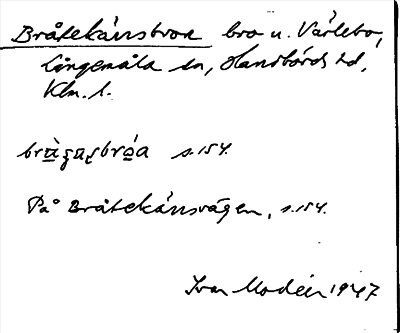 Bråtekänsbron bro u. Värlebo,
Långemåla sn, Handbörds hd,
Klm. l.
s. 154.
På Bråtekänsvägen, s. 154.
Ivar Modéer 1947